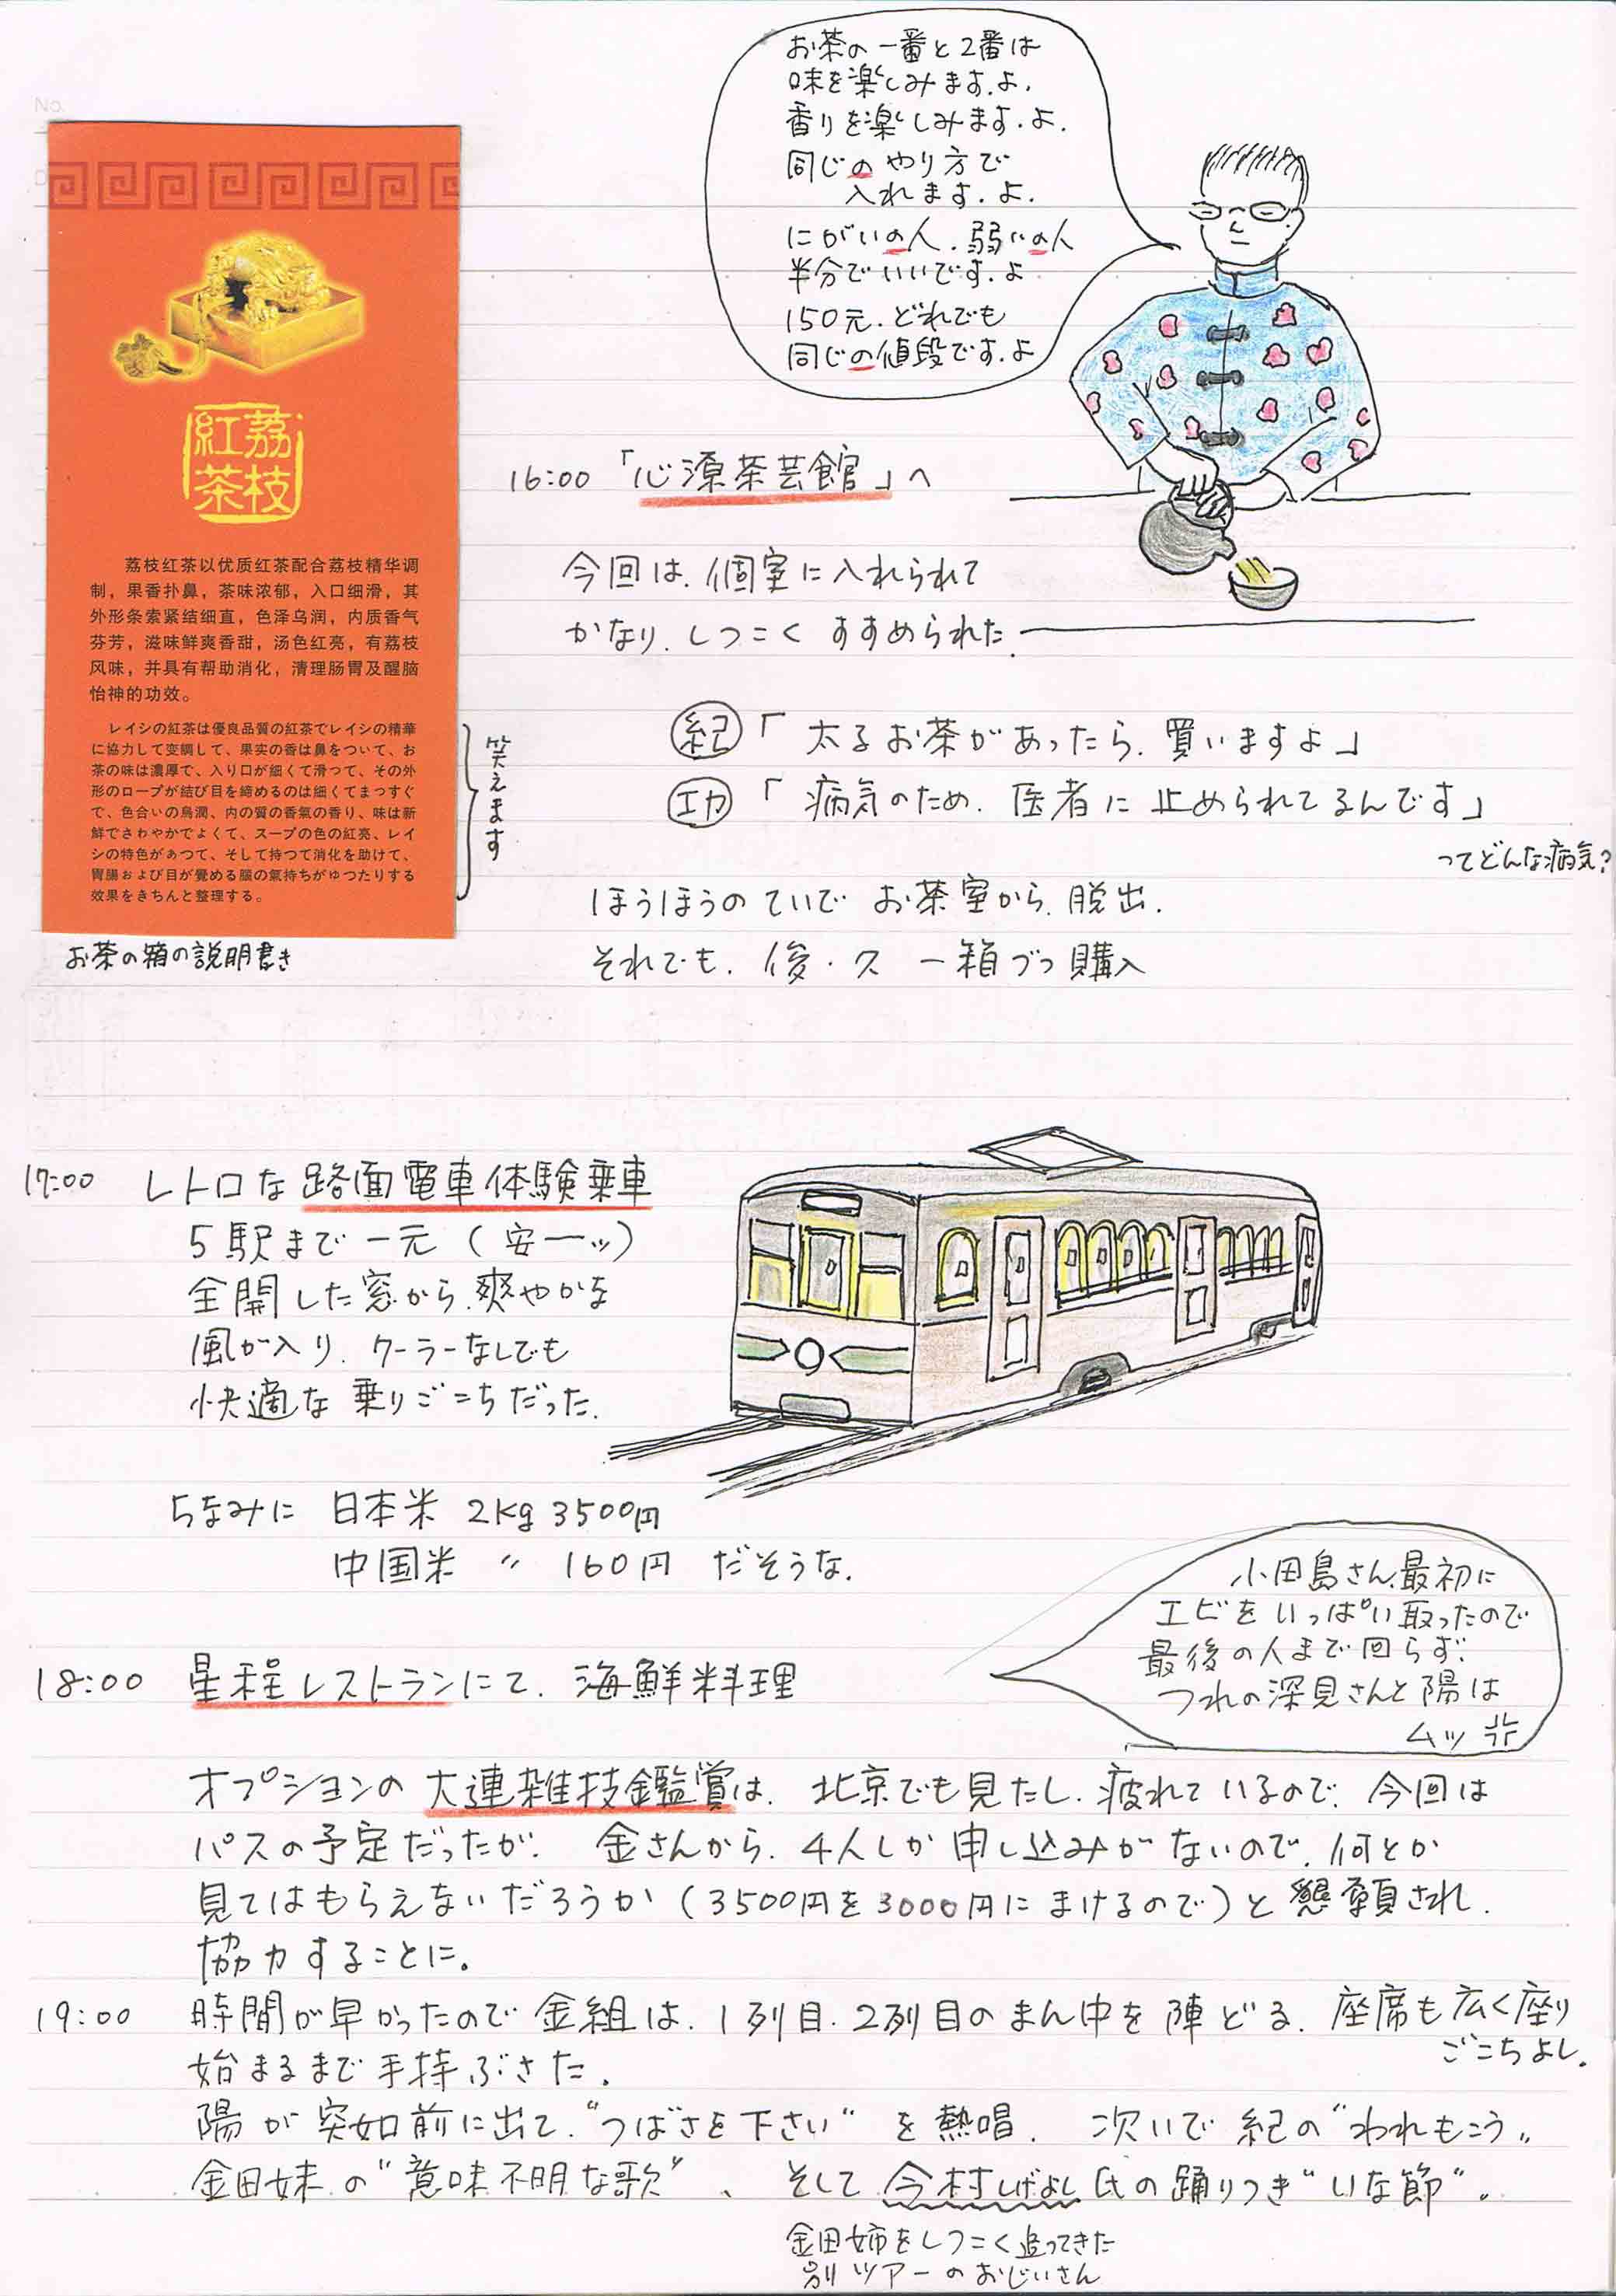 No.
お茶の一番と2番は
味を楽しみます.よ.
香りを楽しみます.よ.
同じのやり方で
入れます.よ.
にがいの人.弱いの人
半分でいいです.よ
150元.どれでも
同じの値段です.よ
荔枝
紅茶
荔枝红茶以优质红茶配合荔枝精华调
制，果香扑鼻，茶味浓郁，入口细滑，其
外形条索紧结细直，色泽乌润，内质香气
芬芳，滋味鲜爽香甜，汤色红亮，有荔枝
风味，并具有帮助消化，清理肠胃及醒脑
怡神的功效。
レイシの紅茶は優良品質の紅茶でレイシの精華
に協力して変調して、果実の香は鼻をついて、お
茶の味は濃厚で、入り口が細くて滑つて、その外
形のロープが結び目を締めるのは細くてまつすぐ
で、色合いの烏潤、内の質の香氣の香り、味は新
鮮でさわやかでよくて、スープの色の紅亮、レイ
シの特色があつて、そして持つて消化を助けて、
胃腸および目が覺める腦の氣持ちがゆつたりする
效果をきちんと整理する。
笑えます
お茶の箱の説明書き
16:00「心源茶芸館」へ
今回は、個室に入れられて
かなり、しつこくすすめられた.
紀「太るお茶があったら、買いますよ」
功「病気のため、医者に止められてるんです」
ってどんな病気?
ほうほうのていでお茶室から、脱出.
それでも、俊・久 一箱づつ購入
17:00 レトロな路面電車体験乗車
5駅まで一元(安ーッ)
全開した窓から、爽やかな
風が入り、クーラーなしでも
快適な乗りごこちだった.
ちなみに 日本米 2kg 3500円
中国米 〃 160円 だそうな.
小田島さん、最初に
エビをいっぱい取ったので
最後の人まで回らず.
つれの深見さんと陽は
ムッ
18:00 星程レストランにて、海鮮料理
オプションの大連雑技鑑賞は、北京でも見たし、疲れているので、今回は
パスの予定だったが、金さんから、4人しか申し込みがないので、何とか
見てはもらえないだろうか(3500円を3000円にまけるので)と懇願され.
協力することに。
19:00 時間が早かったので金組は、1列目、2列目のまん中を陣どる. 座席も広く座り
ごこちよし.
始まるまで手持ぶさた.
陽が突如前に出て、"つばさを下さい"を熱唱. 次いで紀の"われもこう"
金田妹の"意味不明な歌"、そして今村しげよし氏の踊りつき"いな節".
金田姉をしつこく追ってきた
別ツアーのおじいさん